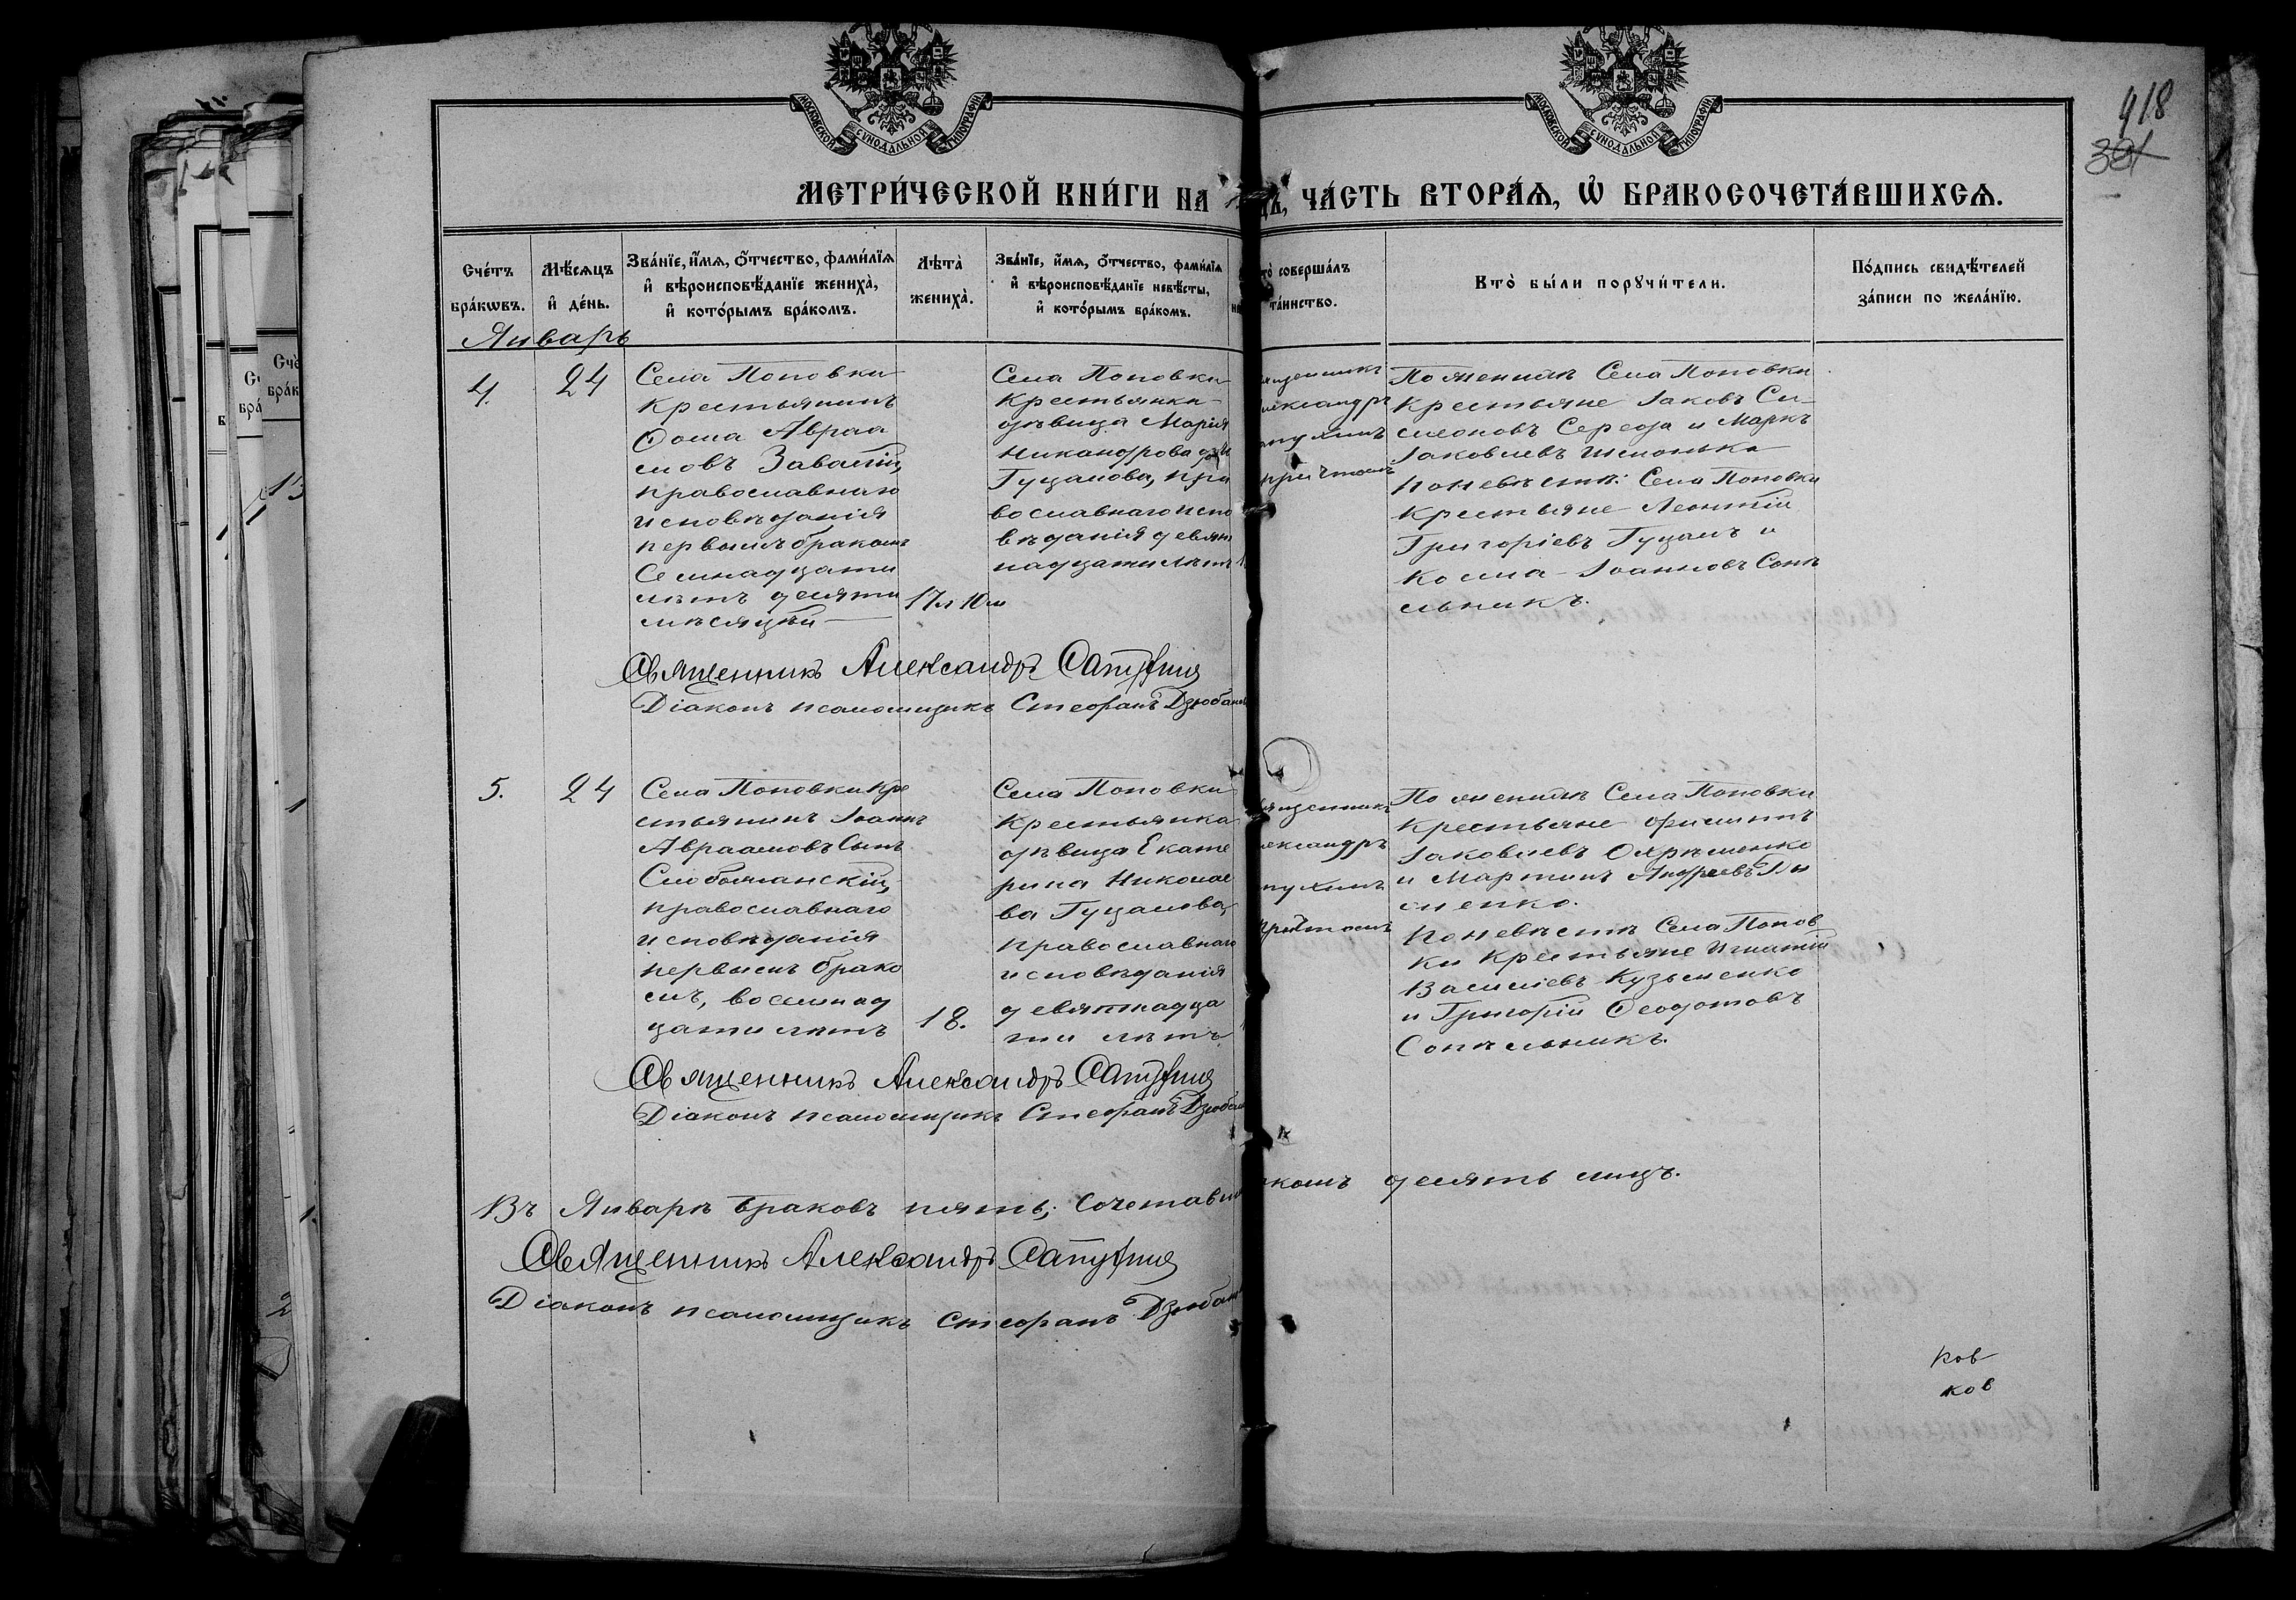 918
321
МОСКОВСКОЙ СУНОДАЛЬНОЙ ТИПОГРАФІИ
МОСКОВСКОЙ СУНОДАЛЬНОЙ ТИПОГРАФІИ
МЕТРИ́ЧЕСКОЙ КНИ́ГИ НА
ЧА́СТЬ ВТОРА́Я, Ѽ БРАКОСОЧЕТА́ВШИХСЯ.
Сче́тъ бра́кѡвъ.
Мѣ́сяцъ и҆ де́нь.
Зва́нїе, и҆́мя, ѻ҆́тчество, фами́лїя
и҆ вѣроисповѣ́данїе жениха̀,
и҆ кото́рымъ бра́комъ.
Лѣ́та̀ жениха̀.
Зва́нїе, и҆́мя, ѻ҆́тчество, фами́лїя
и҆ вѣроисповѣ́данїе невѣ́сты,
и҆ кото́рымъ бра́комъ.
то̀ соверша́лъ
та́инство.
Кто̀ бы́ли порꙋчи́тели.
По́дпись свидѣ́телей
за́писи по жела́нїю.
Январь
4.
24
Села Поповки
крестьянинъ
Ѳома Авраа
мовъ Завалій,
православнаго
исповѣданія
первымъ бракомъ
Семнадцати
лѣтъ десяти
мѣсяцевъ
17 л 10 м
Села Поповки
крестьянка
дѣвица Марія
Никандрова
Гуцалова, пра
вославнаго испо
вѣданія девят
надцати лѣтъ
ященникъ
лександръ
апухинъ
причтомъ
По женихѣ: Села Поповки
крестьяне Іаковъ Си-
меоновъ Середа и Маркъ
Іаковлевъ Шелонька
По невѣстѣ: Села Поповки
крестьяне Леонтій
Григоріевъ Гуцалъ и
Косма Іоанновъ Сопѣ
льникъ.
Священникъ Александръ Сапухинъ
Діаконъ псаломщикъ Стефанъ Дзюбан
5.
24
Села Поповки кре
стьянинъ Іоаннъ
Авраамовъ Сынъ
Слобожанскій,
православнаго
исповѣданія
первымъ брако
мъ, восемнад
цати лѣтъ
18.
Села Поповки
крестьянка
дѣвица Екате
рина Николае
ва Гуцалова,
православнаго
исповѣданія
девятнадца
ти лѣтъ
ященникъ
лександръ
апухинъ
причтомъ
По женихѣ Села Поповки
крестьяне Филиппъ
Іаковлевъ Охрѣменко
и Мартинъ Андреевъ
менко.
По невѣстѣ Села Попов
ки крестьяне Игнатій
Василіевъ Кузьменко
и Григорій Ѳеодотовъ
Сопѣльникъ.
Священникъ Александръ Сапухинъ
Діаконъ псаломщикъ Стефанъ Дзюбан
Въ Январѣ браковъ пять; Сочетавш
комъ десять лицъ.
Священникъ Александръ Сапухинъ
Діаконъ псаломщикъ Стефанъ Дзюбан
ков
ков